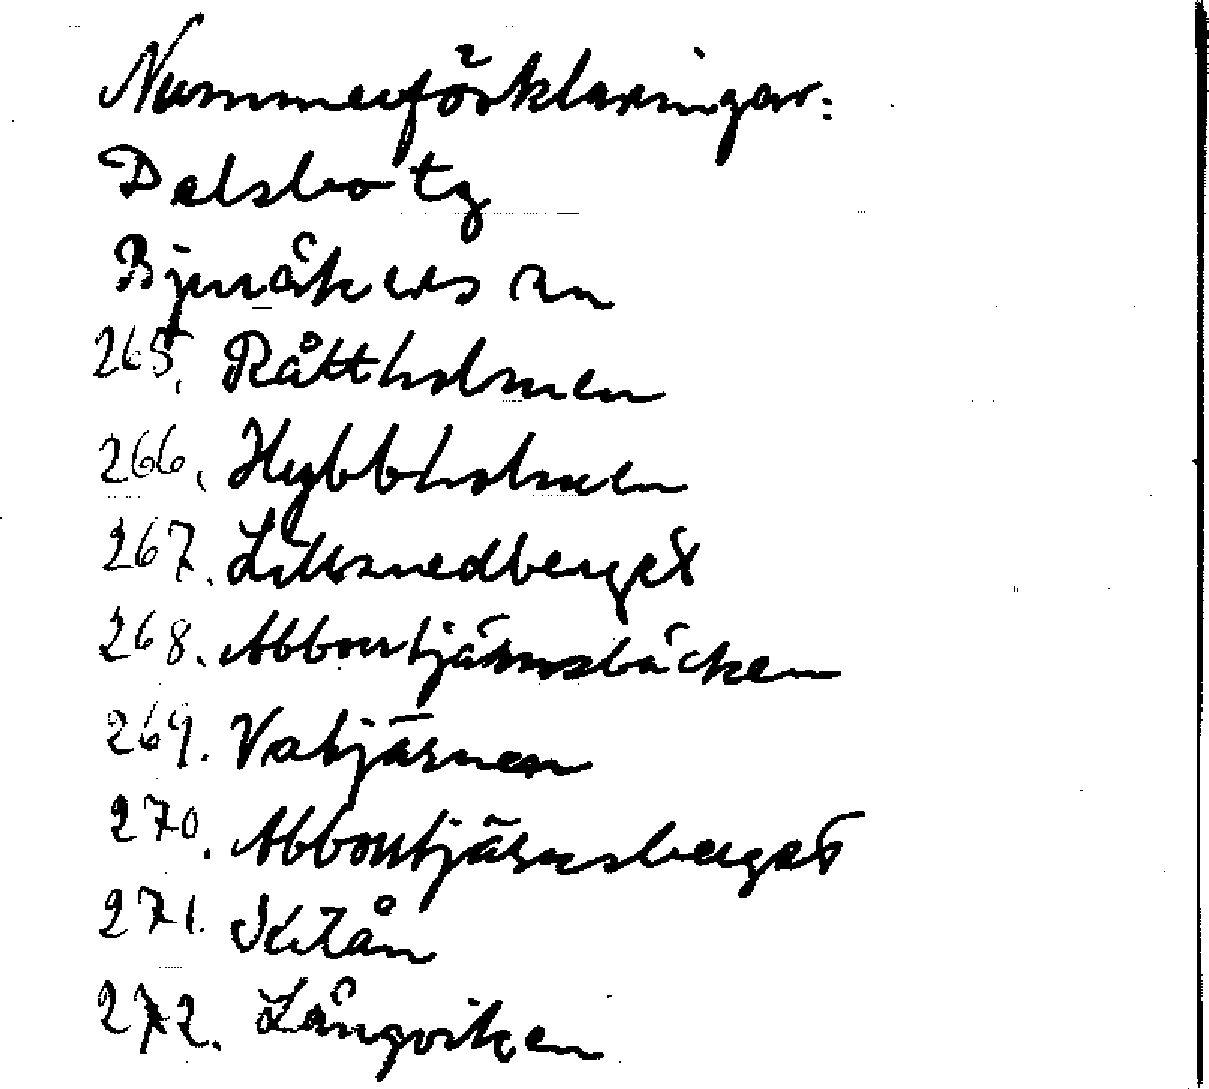 Nummerförklaringar:
Dalsbo tg
Bjuråkers sn
265. Råttholmen
266. Hybbholmen
267. Lillsmedberget
268. Abborrtjärnsbäcken
269. Vatjärnen
270. Abborrtjärnsberget
271. Kitån
272. Långviken